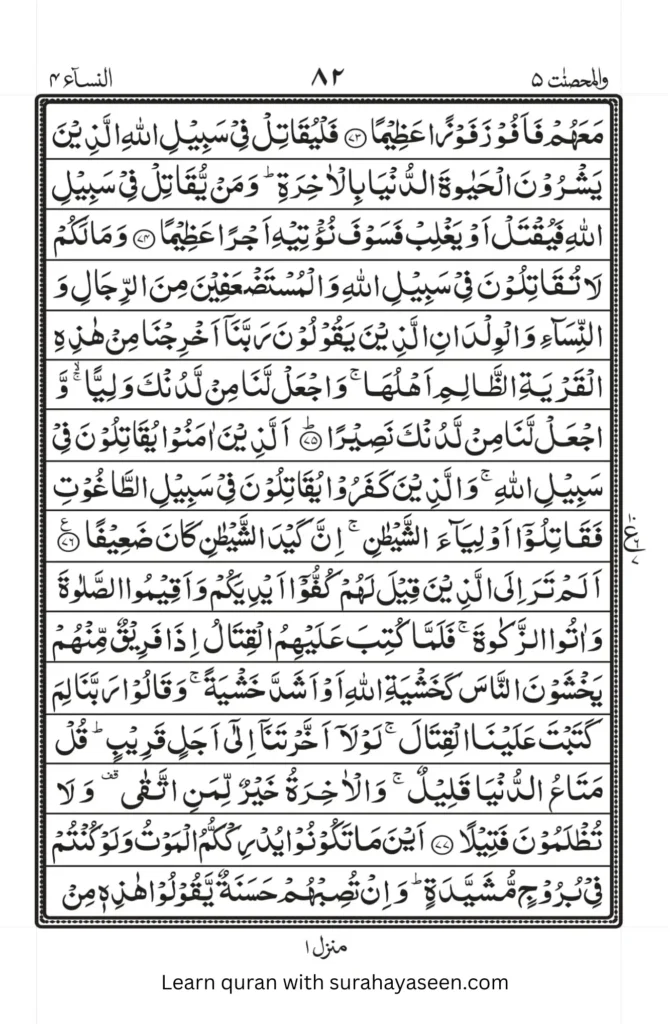 والمحصنٰت ۵ ۸۲ النسآء ۴
مَعَهُمْ فَاَفُوْزَ فَوْزًا عَظِيْمًا ﴿۷۳﴾ فَلْيُقَاتِلْ فِيْ سَبِيْلِ اللّٰهِ الَّذِيْنَ
يَشْرُوْنَ الْحَيٰوةَ الدُّنْيَا بِالْاٰخِرَةِ ؕ وَمَنْ يُّقَاتِلْ فِيْ سَبِيْلِ
اللّٰهِ فَيُقْتَلْ اَوْ يَغْلِبْ فَسَوْفَ نُؤْتِيْهِ اَجْرًا عَظِيْمًا ﴿۷۴﴾ وَمَا لَكُمْ
لَا تُقَاتِلُوْنَ فِيْ سَبِيْلِ اللّٰهِ وَالْمُسْتَضْعَفِيْنَ مِنَ الرِّجَالِ وَ
النِّسَآءِ وَالْوِلْدَانِ الَّذِيْنَ يَقُوْلُوْنَ رَبَّنَآ اَخْرِجْنَا مِنْ هٰذِهِ
الْقَرْيَةِ الظَّالِمِ اَهْلُهَا ۚ وَاجْعَلْ لَّنَا مِنْ لَّدُنْكَ وَلِيًّا ۙۚ وَّ
اجْعَلْ لَّنَا مِنْ لَّدُنْكَ نَصِيْرًا ﴿۷۵﴾ؕ اَلَّذِيْنَ اٰمَنُوْا يُقَاتِلُوْنَ فِيْ
سَبِيْلِ اللّٰهِ ۚ وَالَّذِيْنَ كَفَرُوْا يُقَاتِلُوْنَ فِيْ سَبِيْلِ الطَّاغُوْتِ
فَقَاتِلُوْٓا اَوْلِيَآءَ الشَّيْطٰنِ ۚ اِنَّ كَيْدَ الشَّيْطٰنِ كَانَ ضَعِيْفًا ﴿۷۶﴾ۧ
اَلَمْ تَرَ اِلَى الَّذِيْنَ قِيْلَ لَهُمْ كُفُّوْٓا اَيْدِيَكُمْ وَاَقِيْمُوا الصَّلٰوةَ
وَاٰتُوا الزَّكٰوةَ ۚ فَلَمَّا كُتِبَ عَلَيْهِمُ الْقِتَالُ اِذَا فَرِيْقٌ مِّنْهُمْ
يَخْشَوْنَ النَّاسَ كَخَشْيَةِ اللّٰهِ اَوْ اَشَدَّ خَشْيَةً ۚ وَقَالُوْا رَبَّنَا لِمَ
كَتَبْتَ عَلَيْنَا الْقِتَالَ ۚ لَوْلَآ اَخَّرْتَنَآ اِلٰٓى اَجَلٍ قَرِيْبٍ ؕ قُلْ
مَتَاعُ الدُّنْيَا قَلِيْلٌ ۚ وَالْاٰخِرَةُ خَيْرٌ لِّمَنِ اتَّقٰى ۟ وَلَا
تُظْلَمُوْنَ فَتِيْلًا ﴿۷۷﴾ اَيْنَ مَا تَكُوْنُوْا يُدْرِكْكُّمُ الْمَوْتُ وَلَوْ كُنْتُمْ
فِيْ بُرُوْجٍ مُّشَيَّدَةٍ ؕ وَاِنْ تُصِبْهُمْ حَسَنَةٌ يَّقُوْلُوْا هٰذِهٖ مِنْ
منزل ۱
Learn quran with surahayaseen.com